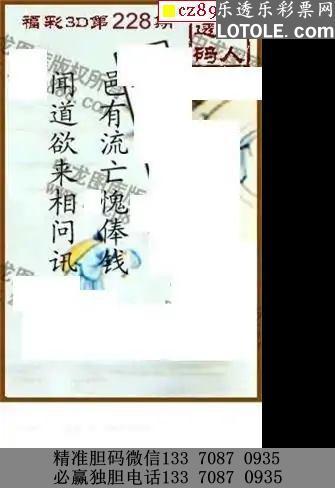 福彩3D第228期
cz89
乐透乐彩票网
LOTOLE.com
透码人
邑有流亡愧俸钱
闻道欲来相问讯
精准胆码微信133 7087 0935
必赢独胆电话133 7087 0935